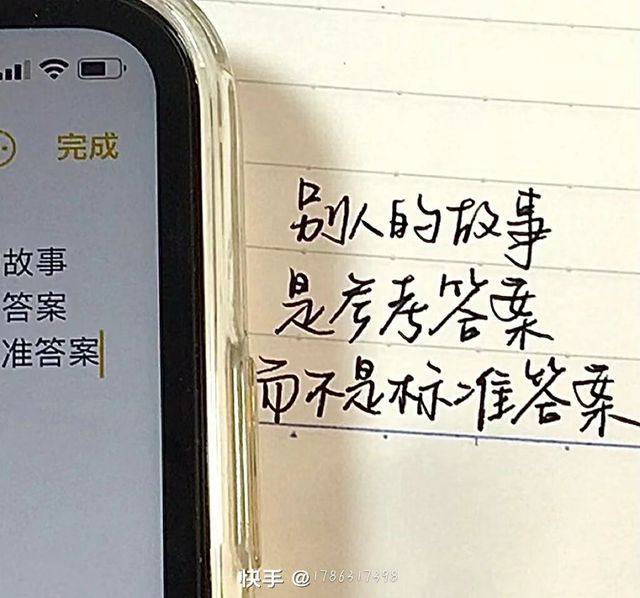 完成
故事
答案
准答案
别人的故事
是参考答案
而不是标准答案
快手 @1786317398